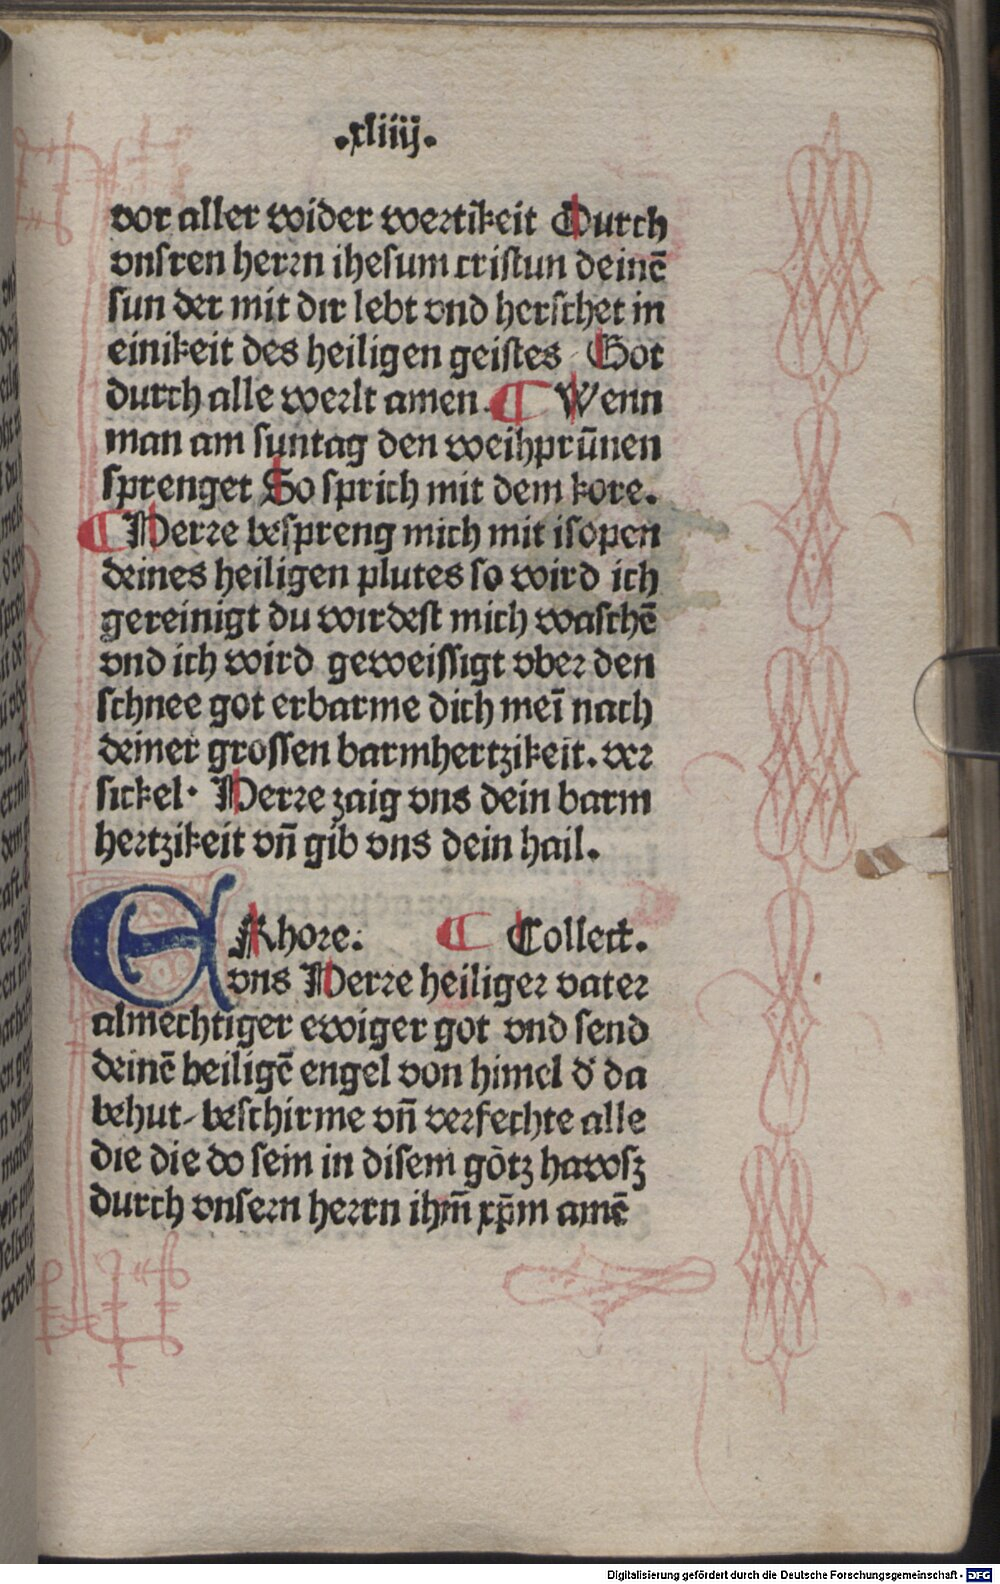 .xliiij.
vor aller wider wertikeit Durch
vnſren herrn iheſum criſtun deinē
ſun der mit dir lebt vnd herſchet in
einikeit des heiligen geiſtes Got
durch alle werlt amen. ¶ Wenn
man am ſuntag den weihprūnen
ſprenget So ſprich mit dem kore.
¶ Herre beſpreng mich mit iſopen
deines heiligen plutes ſo wird ich
gereinigt du wirdeſt mich waſchē
vnd ich wird geweiſſigt vber den
ſchnee got erbarme dich meī nach
deiner groſſen barmhertzikeit. ver
ſickel· Herre zaig vns dein barm
hertzikeit vn̄ gib vns dein hail.
E Rhore. ¶ Collect.
vns Herre heiliger vater
almechtiger ewiger got vnd ſend
deinē heiligē engel von himel d' da
behut beſchirme vn̄ verfechte alle
die die do ſein in diſem gōtz hawſz
durch vnſern herrn ihm̄ xp̄m amē
Digitalisierung gefördert durch die Deutsche Forschungsgemeinschaft - DFG